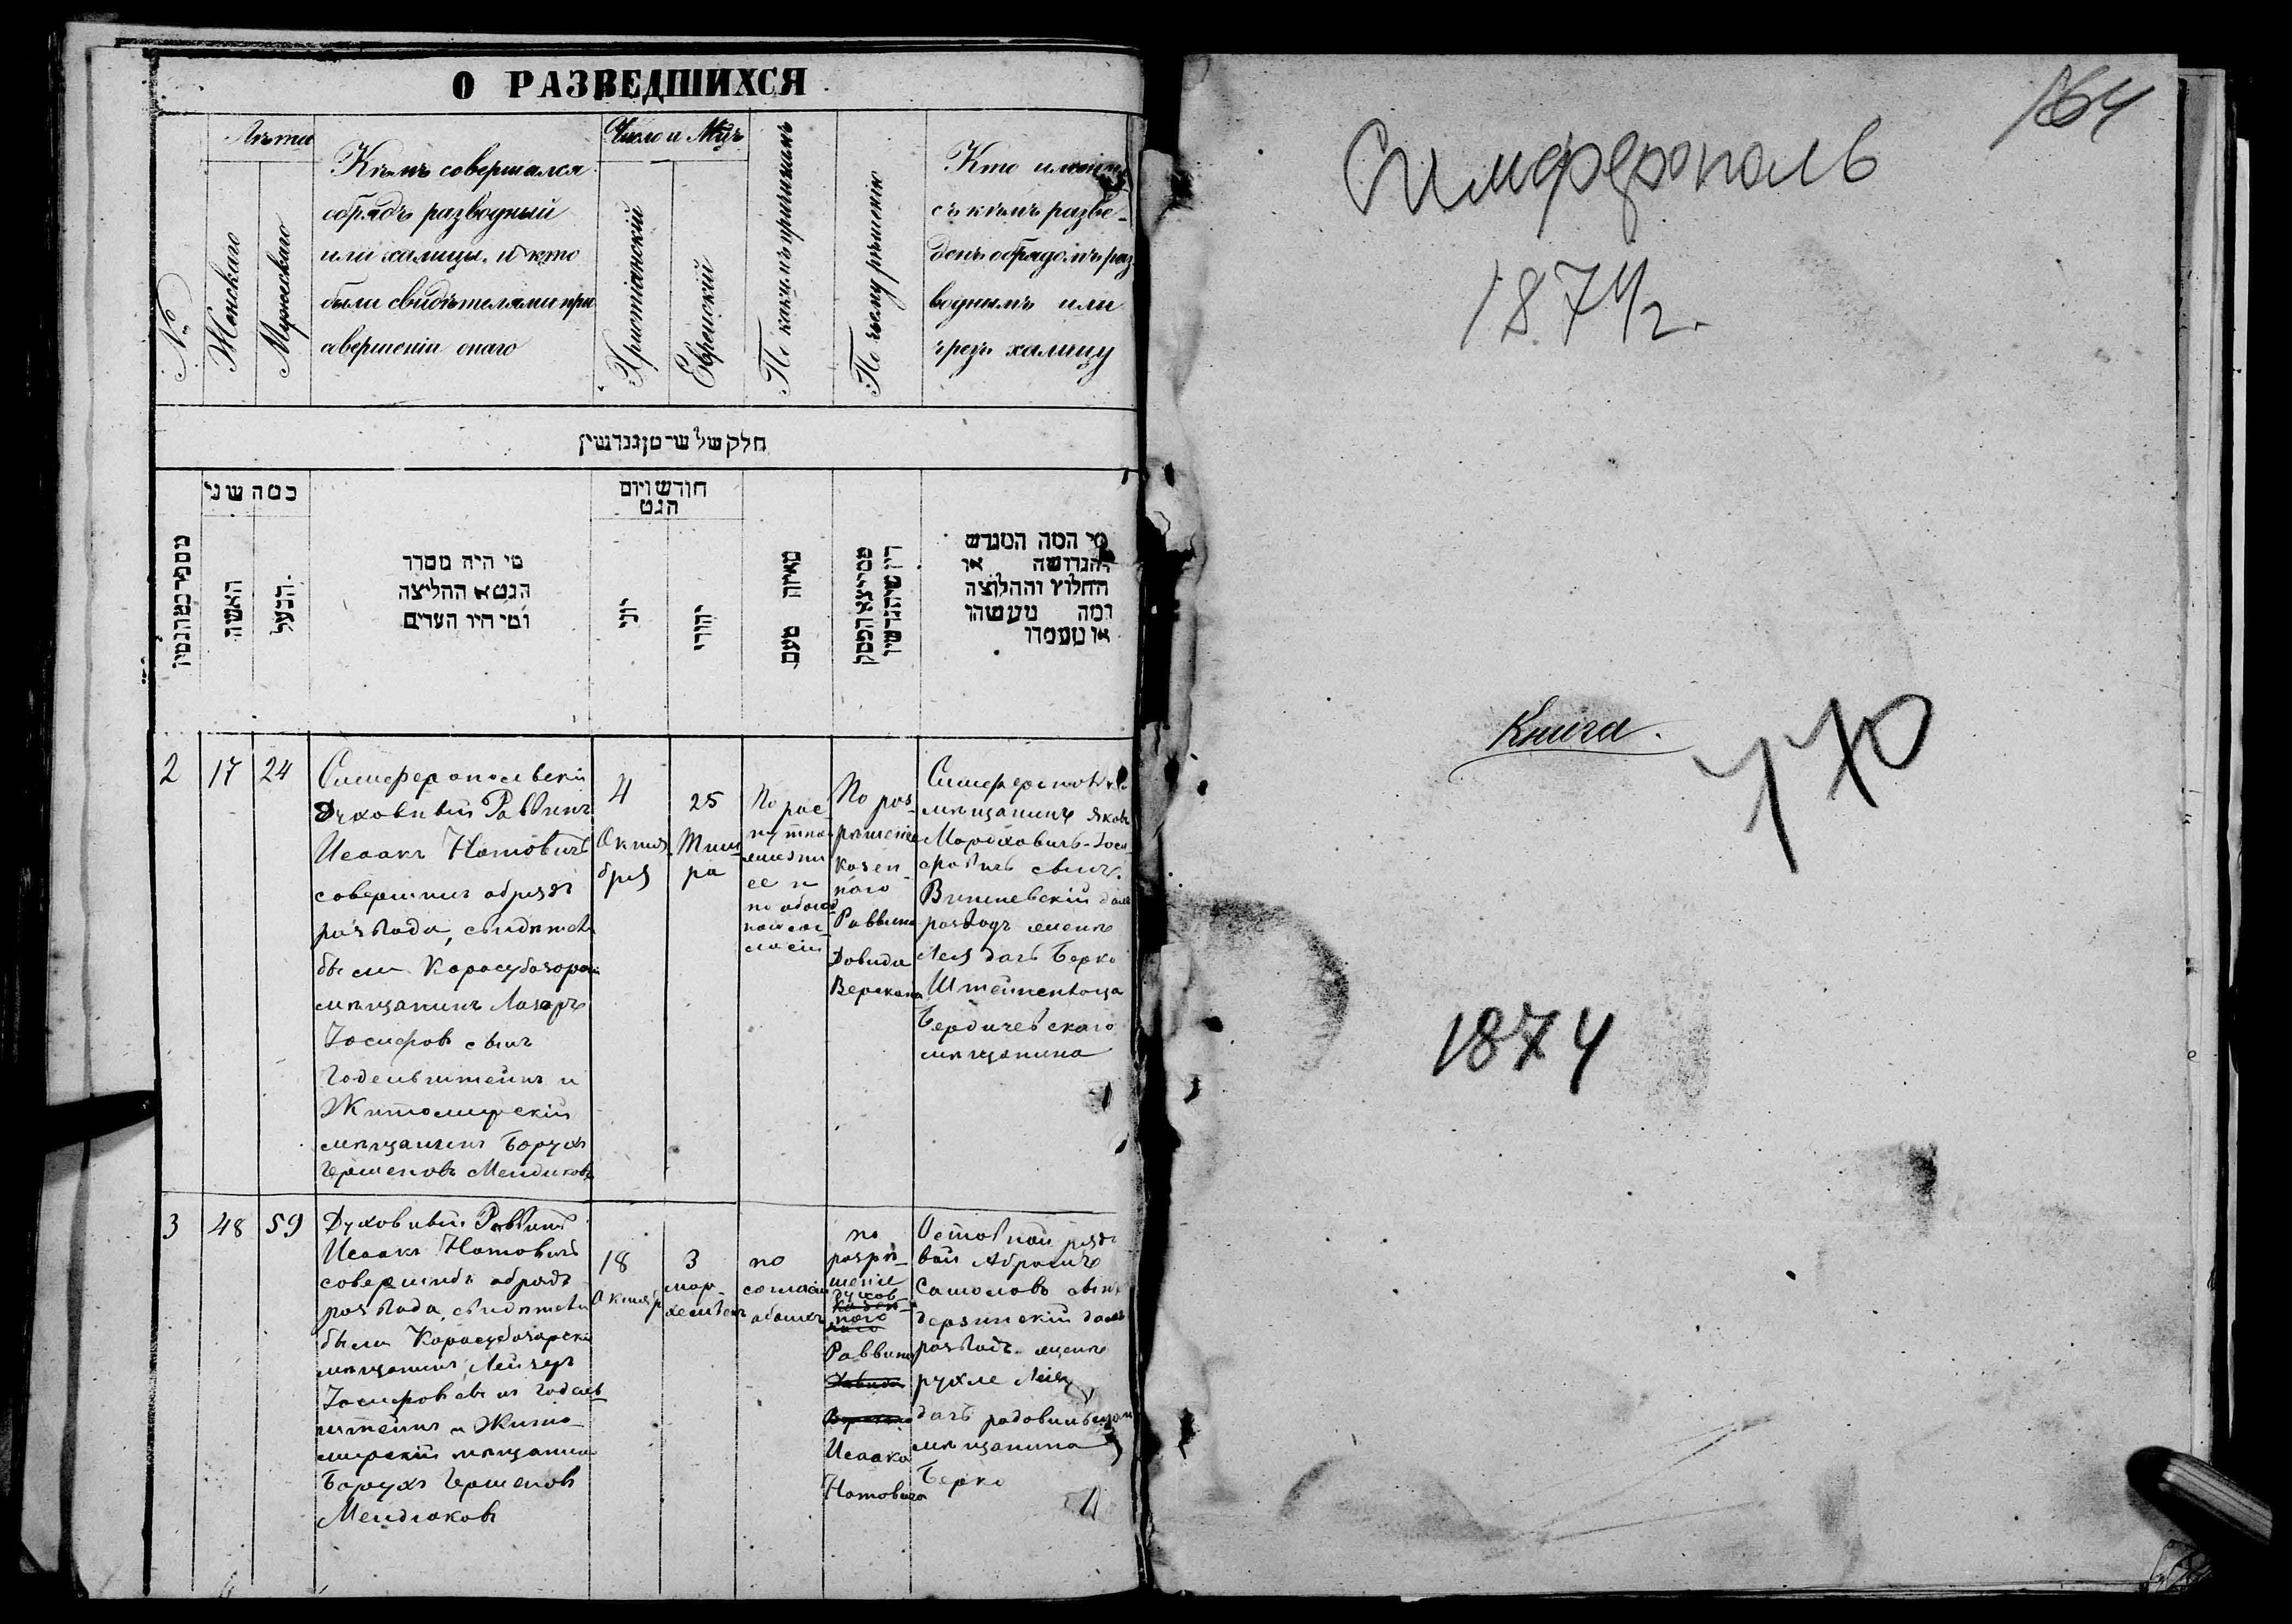 О РАЗВЕДШИХСЯ
№
Лѣта
Женскаго
Мужескаго
Кѣмъ совершался
обрядъ разводный
или халицы. и кто
были свидѣтелями при
совершеніи онаго
Число и Мѣц.
Христіанскій
Еврейскій
По какимъ причинамъ
По чьему рѣшенію
Кто именно
съ кѣмъ разве-
денъ обрядомъ раз
воднымъ или
чрезъ халицу
חלק של שטן גנדשין
כמה שני
האשה
הבעל
מי היה מסדר
הגט או החליצה
ומי היו העדים
חודש ויום
הגט
יוני
יהודי
מאיזה טעם
מי המה המגרש
והגרושה או
החלוץ והחלוצה
ומה מעשהו
או מעמדו
2
17
24
Симферопольскій
Духовный Раввинъ
Исаакъ Натовичъ
совершилъ обрядъ
развода, свидѣтели
были Карасубазарскій
мѣщанинъ Лазарь
Іосифовъ сынъ
Годельштейнъ и
Житомирскій
мѣщанинъ Борухъ
Гершеновъ Мендюковъ
4
Октя
бря
25
Тиш
ра
По рас
путной
жизни
ее и
по обоюд
ному со
гласію
По раз-
рѣшенію
казен-
наго
Раввина
Давида
Верскана
мѣщанинъ Яковъ
Мордховичъ-Іоси
фовичъ сынъ
Вишневскій далъ
разводъ женѣ
Леѣ дочь Берко
Бердичевскаго
мѣщанина
3
48
59
Духовный Раввинъ
Исаакъ Натовичъ
совершилъ обрядъ
развода, свидѣтели
были Карасубазарскій
мѣщанинъ Лейзеръ
Іосифовъ сынъ Годель
штейнъ и Жито-
мирскій мѣщанинъ
Борухъ Гершеновъ
Мендюковъ
18
Октябр
3
мар-
хешвон
по
согласію
обоихъ
по
разрѣ-
шенію
духов
наго
Раввина
Исаака
Натовича
Отставной рядо
вой Абрамъ
Самоловъ сынъ
Дерзинскій далъ
разводъ женѣ
рухле Леи
дочь
мѣщанина
Берко
164
Симферополь
1874/2.
Книга.
770
1874